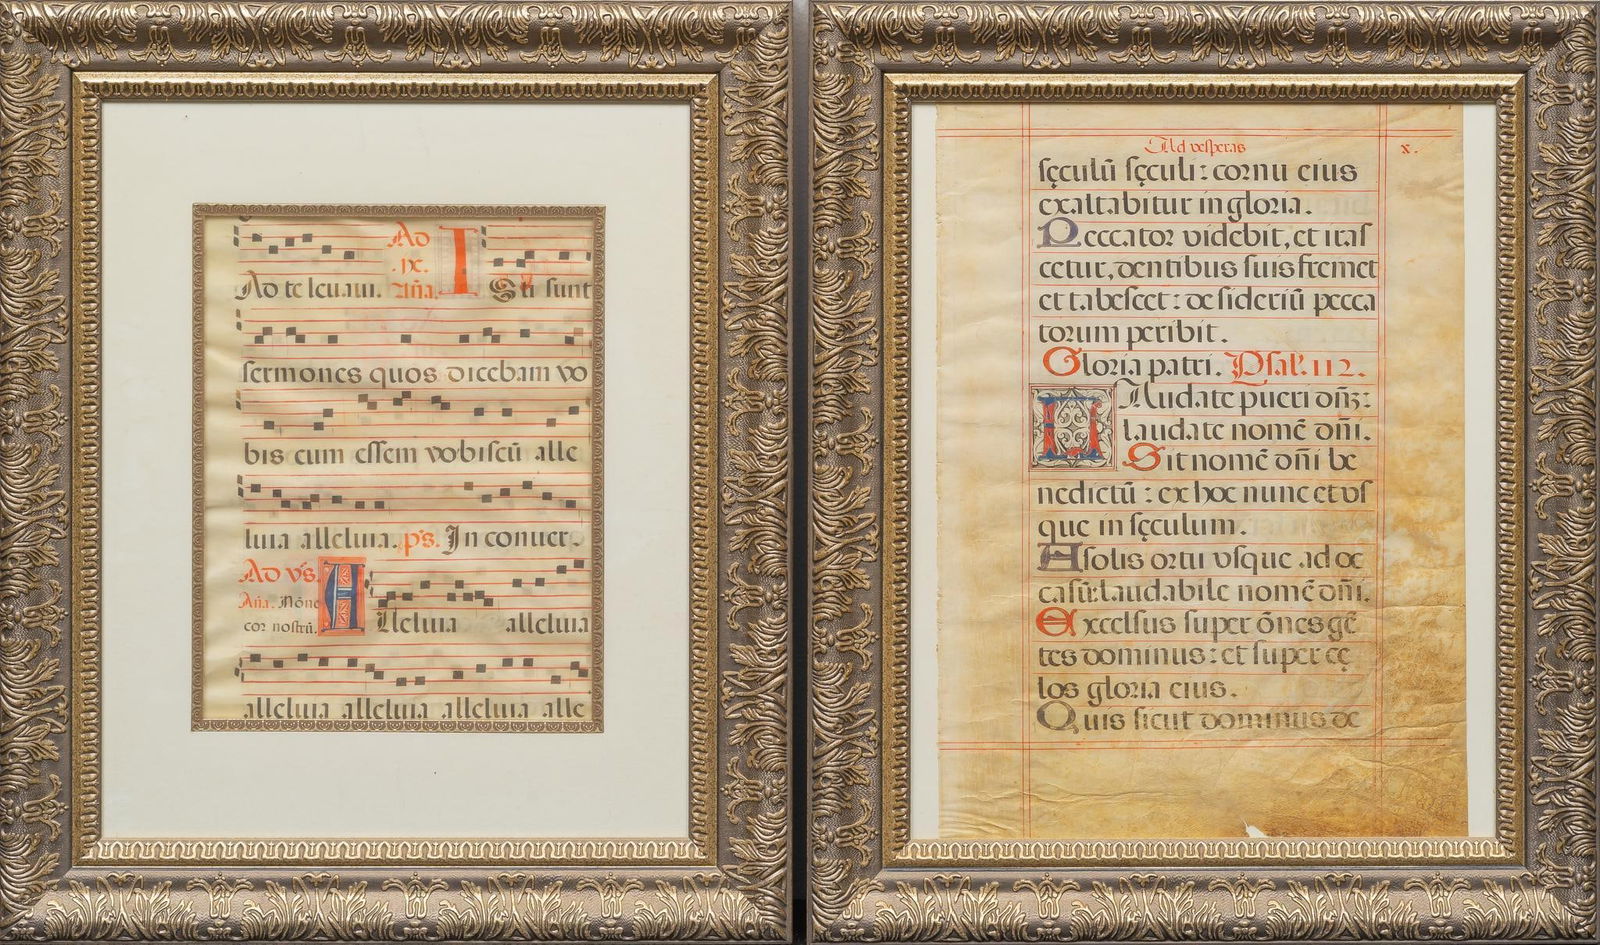 Ad
Ad te leuaui. .ix. Aña. I Sti sunt
sermones quos dicebam vo
bis cum essem vobiscū alle
luia alleluia. ps. In conuer
Ad vs.
Aña. Nōne
cor nostrū. A lleluia alleluia
alleluia alleluia alleluia alle
Ad vesperas x.
sęculū sęculi: cornu eius
exaltabitur in gloria.
Peccator videbit, et iras
cetur, dentibus suis fremet
et tabescet: desideriū pecca
torum peribit.
Gloria patri. Psal. 112.
LAudate pueri dn̄z:
laudate nomē dn̄i.
Sit nomē dn̄i be
nedictū: ex hoc nunc et vs
que in sęculum.
A solis ortu vsque ad oc
casū: laudabile nomē dn̄i.
Excelsus super ōnes gē
tes dominus: et super cę
los gloria eius.
Quis sicut dominus de